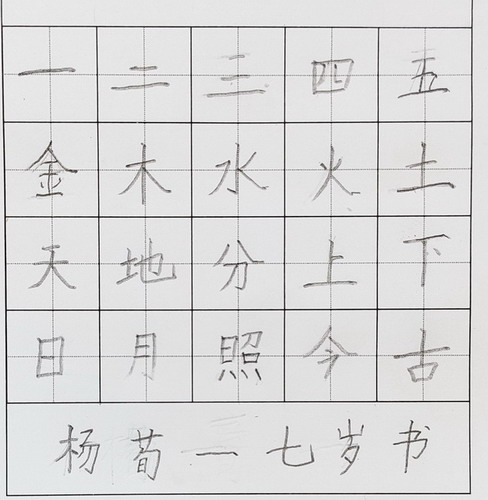 一二三四五
金木水火土
天地分上下
日月照今古
杨荀一七岁书